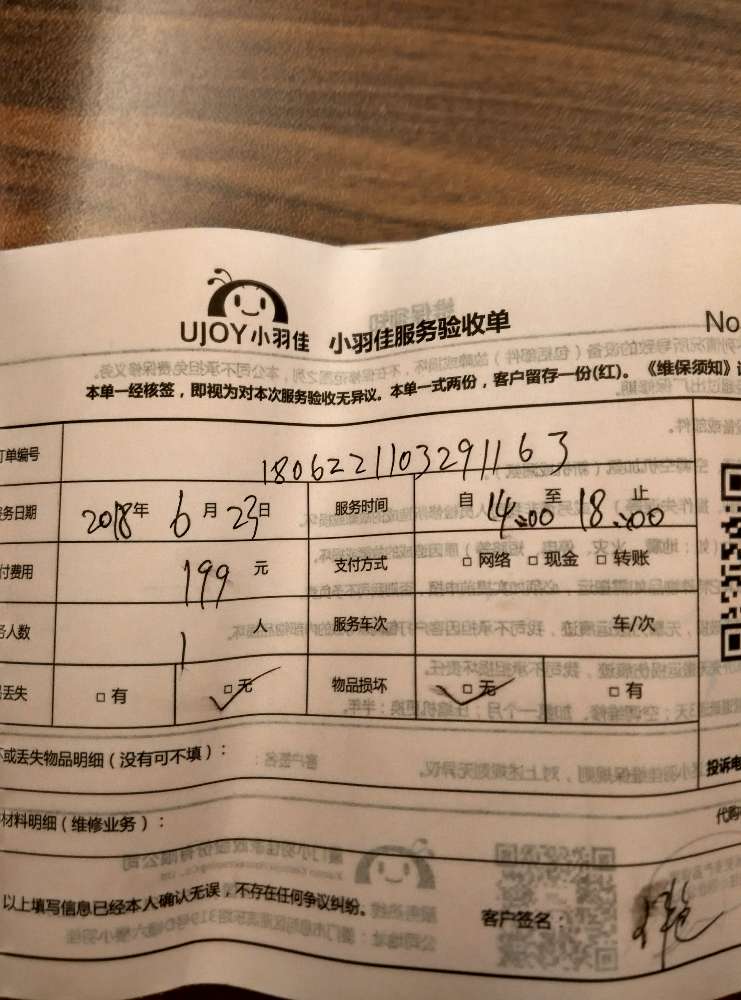 UJOY小羽佳 小羽佳服务验收单 No
本单一经核签，即视为对本次服务验收无异议。本单一式两份，客户留存一份(红)。《维保须知》
订单编号 1806221103291163
服务日期 2018年 6月 23日 服务时间 自 14:00 至 18:00 止
付费用 199 元 支付方式 □ 网络 □ 现金 □ 转账
务人数 1 人 服务车次 车/次
丢失 □ 有 □ 无 物品损坏 □ 无 □ 有
坏或丢失物品明细（没有可不填）： 投诉电
材料明细（维修业务）： 代购
以上填写信息已经本人确认无误，不存在任何争议纠纷。 客户签名：